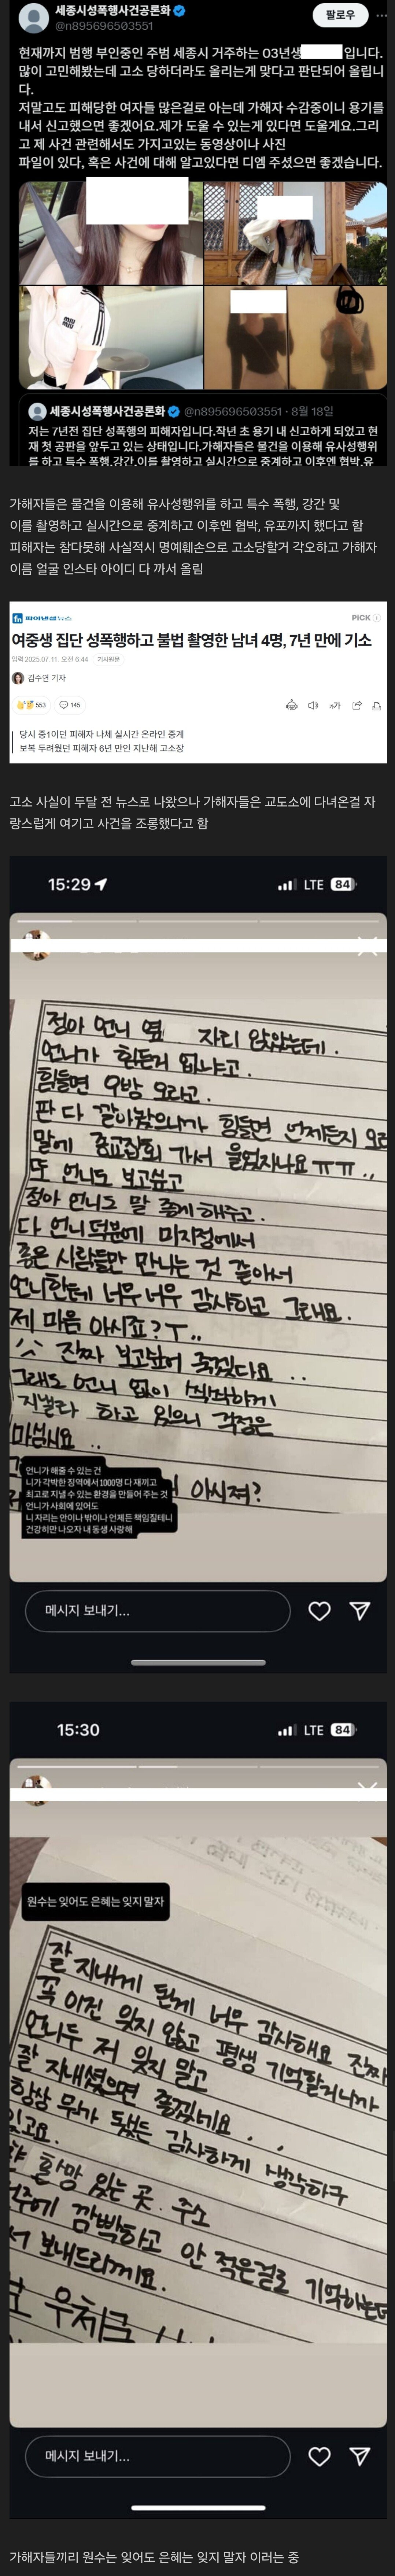 세종시성폭행사건공론화
@n895696503551
팔로우
현재까지 범행 부인중인 주범 세종시 거주하는 03년생 입니다.
많이 고민해봤는데 고소 당하더라도 올리는게 맞다고 판단되어 올립니
다.
저말고도 피해당한 여자들 많은걸로 아는데 가해자 수감중이니 용기를
내서 신고했으면 좋겠어요.제가 도울 수 있는게 있다면 도울게요.그리
고 제 사건 관련해서도 가지고있는 동영상이나 사진
파일이 있다, 혹은 사건에 대해 알고있다면 디엠 주셨으면 좋겠습니다.
miu
miu
세종시성폭행사건공론화 @n895696503551 · 8월 18일
저는 7년전 집단 성폭행의 피해자입니다.작년 초 용기 내 신고하게 되었고 현
재 첫 공판을 앞두고 있는 상태입니다.가해자들은 물건을 이용해 유사성행위
를 하고 특수 폭행,강간,이를 촬영하고 실시간으로 중계하고 이후엔 협박,유
가해자들은 물건을 이용해 유사성행위를 하고 특수 폭행, 강간 및
이를 촬영하고 실시간으로 중계하고 이후엔 협박, 유포까지 했다고 함
피해자는 참다못해 사실적시 명예훼손으로 고소당할거 각오하고 가해자
이름 얼굴 인스타 아이디 다 까서 올림
fn 파이낸셜뉴스
PiCK
여중생 집단 성폭행하고 불법 촬영한 남녀 4명, 7년 만에 기소
입력 2025.07.11. 오전 6:44 기사원문
김수연 기자
553 145
가가
당시 중1이던 피해자 나체 실시간 온라인 중계
보복 두려웠던 피해자 6년 만인 지난해 고소장
고소 사실이 두달 전 뉴스로 나왔으나 가해자들은 교도소에 다녀온걸 자
랑스럽게 여기고 사건을 조롱했다고 함
15:29 LTE 84
정아 언니 옆 자리 앉았는데.
언니가 힌든거 입냐고.
힘들면 오방 오라고.
판 다 깔아놨으니까 힘들면 언제든지 오라
말에 종교집회 가서 울었자나요 ㅠㅠ..
또 언니도 보고싶고
정아 언니도 말 좋게 해주고.
다 언니 덕분에 미지정에서
좋은 사람들만 만나는 것 같아서
언니한테 너무 너무 감사하고 그래요.
제 마음 아시죠?ㅜ..
진짜 보고싶어 죽겠다요..
그래도 언니 없이 씩씩하게
지낼라 하고 있으니 걱정은
마십시요..
아시져?
언니가 해줄 수 있는 건
니가 각박한 징역에서 1000명 다 재끼고
최고로 지낼 수 있는 환경을 만들어 주는 것
언니가 사회에 있어도
니 자리는 안이나 밖이나 언제든 책임질테니
건강히만 나오자 내 동생 사랑해
메시지 보내기...
15:30 LTE 84
원수는 잊어도 은혜는 잊지 말자
잘 지내게 된게 너무 감사해요 진짜
꼭 이건 잊지 않고 평생 기억할거니까
언니두 저 잊지 말고
잘 지내셨으면 좋겠네요.
항상 무가 됐든 감사하게 생각하구
있고요.
희망 있는 곳. 주소
깜빡하고 안 적은걸로 기억하는데
서 보내드라께요.
우체국
메시지 보내기...
가해자들끼리 원수는 잊어도 은혜는 잊지 말자 이러는 중